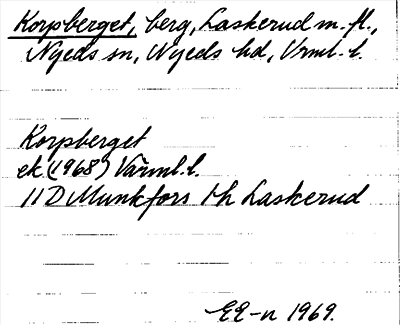 Korpberget, berg, Laskerud m. fl.,
Nyeds sn, Nyeds hd, Vrml. l.
Korpberget
ek (1968) Värml. l.
11D Munkfors Laskerud
EE-n 1969.